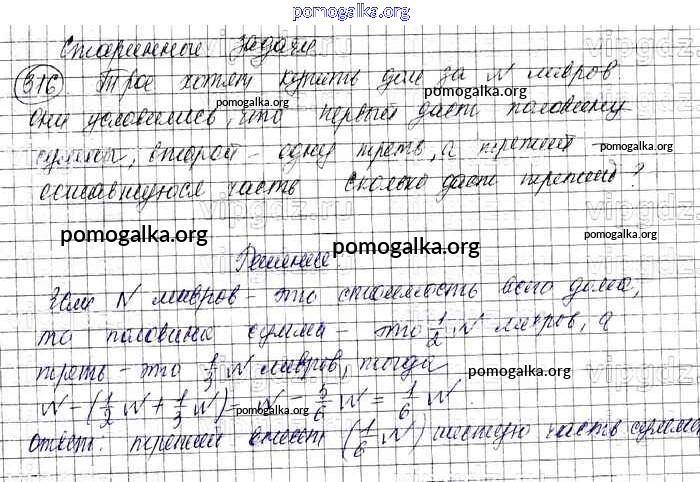 pomogalka.org
Старинные задачи
316 Трое хотят купить дом за N ливров.
Они условились, что первый даст половину
суммы, второй – одну треть, а третий –
оставшуюся часть. Сколько даст третий?
Решение.
Если N ливров – это стоимость всего дома,
то половина суммы – это 1/2 N ливров, а
треть – это 1/3 N ливров, тогда
N – (1/2 N + 1/3 N) = N – 5/6 N = 1/6 N.
Ответ: третий внесет (1/6 N) шестую часть суммы
pomogalka.org
pomogalka.org
pomogalka.org
pomogalka.org
pomogalka.org
pomogalka.org
pomogalka.org
pomogalka.org
vipgdz.ru
vipgdz
vipgdz.ru
vipgdz
vipgdz